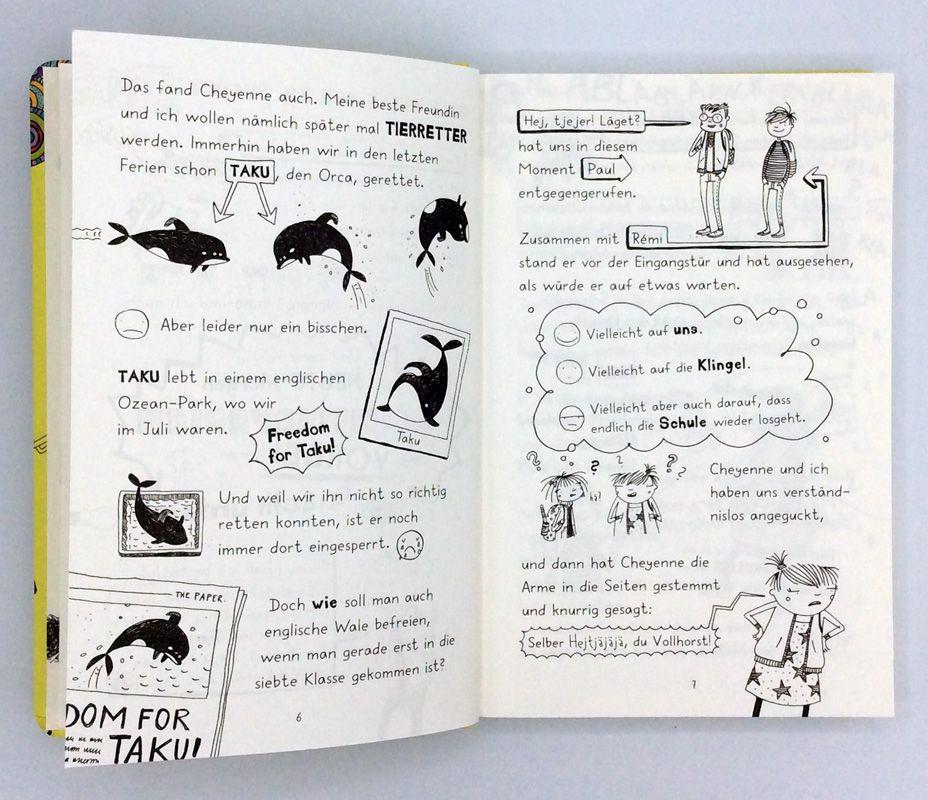 Das fand Cheyenne auch. Meine beste Freundin
und ich wollen nämlich später mal TIERRETTER
werden. Immerhin haben wir in den letzten
Ferien schon TAKU, den Orca, gerettet.
Aber leider nur ein bisschen.
TAKU lebt in einem englischen
Ozean-Park, wo wir
im Juli waren.
Freedom
for Taku!
Taku
Und weil wir ihn nicht so richtig
retten konnten, ist er noch
immer dort eingesperrt.
THE PAPER.
DOM FOR
TAKU!
Doch wie soll man auch
englische Wale befreien,
wenn man gerade erst in die
siebte Klasse gekommen ist?
6
Hej, tjejer! Läget?
hat uns in diesem
Moment Paul
entgegengerufen.
Zusammen mit Rémi
stand er vor der Eingangstür und hat ausgesehen,
als würde er auf etwas warten.
Vielleicht auf uns.
Vielleicht auf die Klingel.
Vielleicht aber auch darauf, dass
endlich die Schule wieder losgeht.
? ? ? ? ?
Cheyenne und ich
haben uns verständ-
nislos angeguckt,
und dann hat Cheyenne die
Arme in die Seiten gestemmt
und knurrig gesagt:
Selber Hejtjäjäjä, du Vollhorst!
7